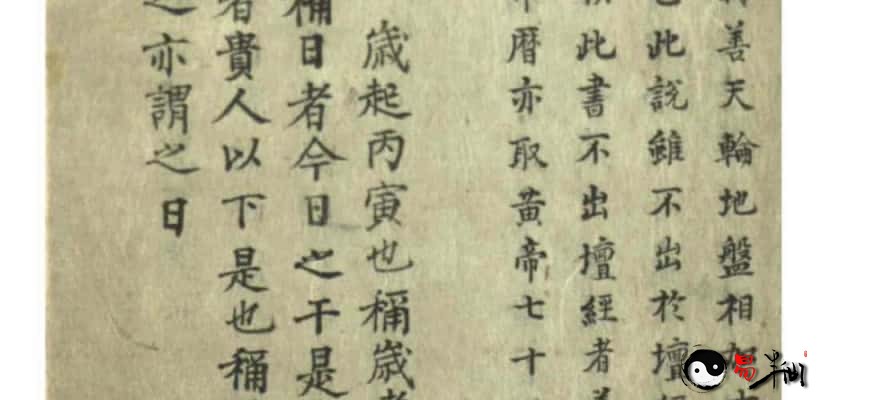 善天輪地盤相加
此說雖不出於壇
此書不出壇經者
曆亦取黃帝七十
歲起丙寅也稱歲
稱日者今日之干是
者貴人以下是也稱
之亦謂之日
易半仙